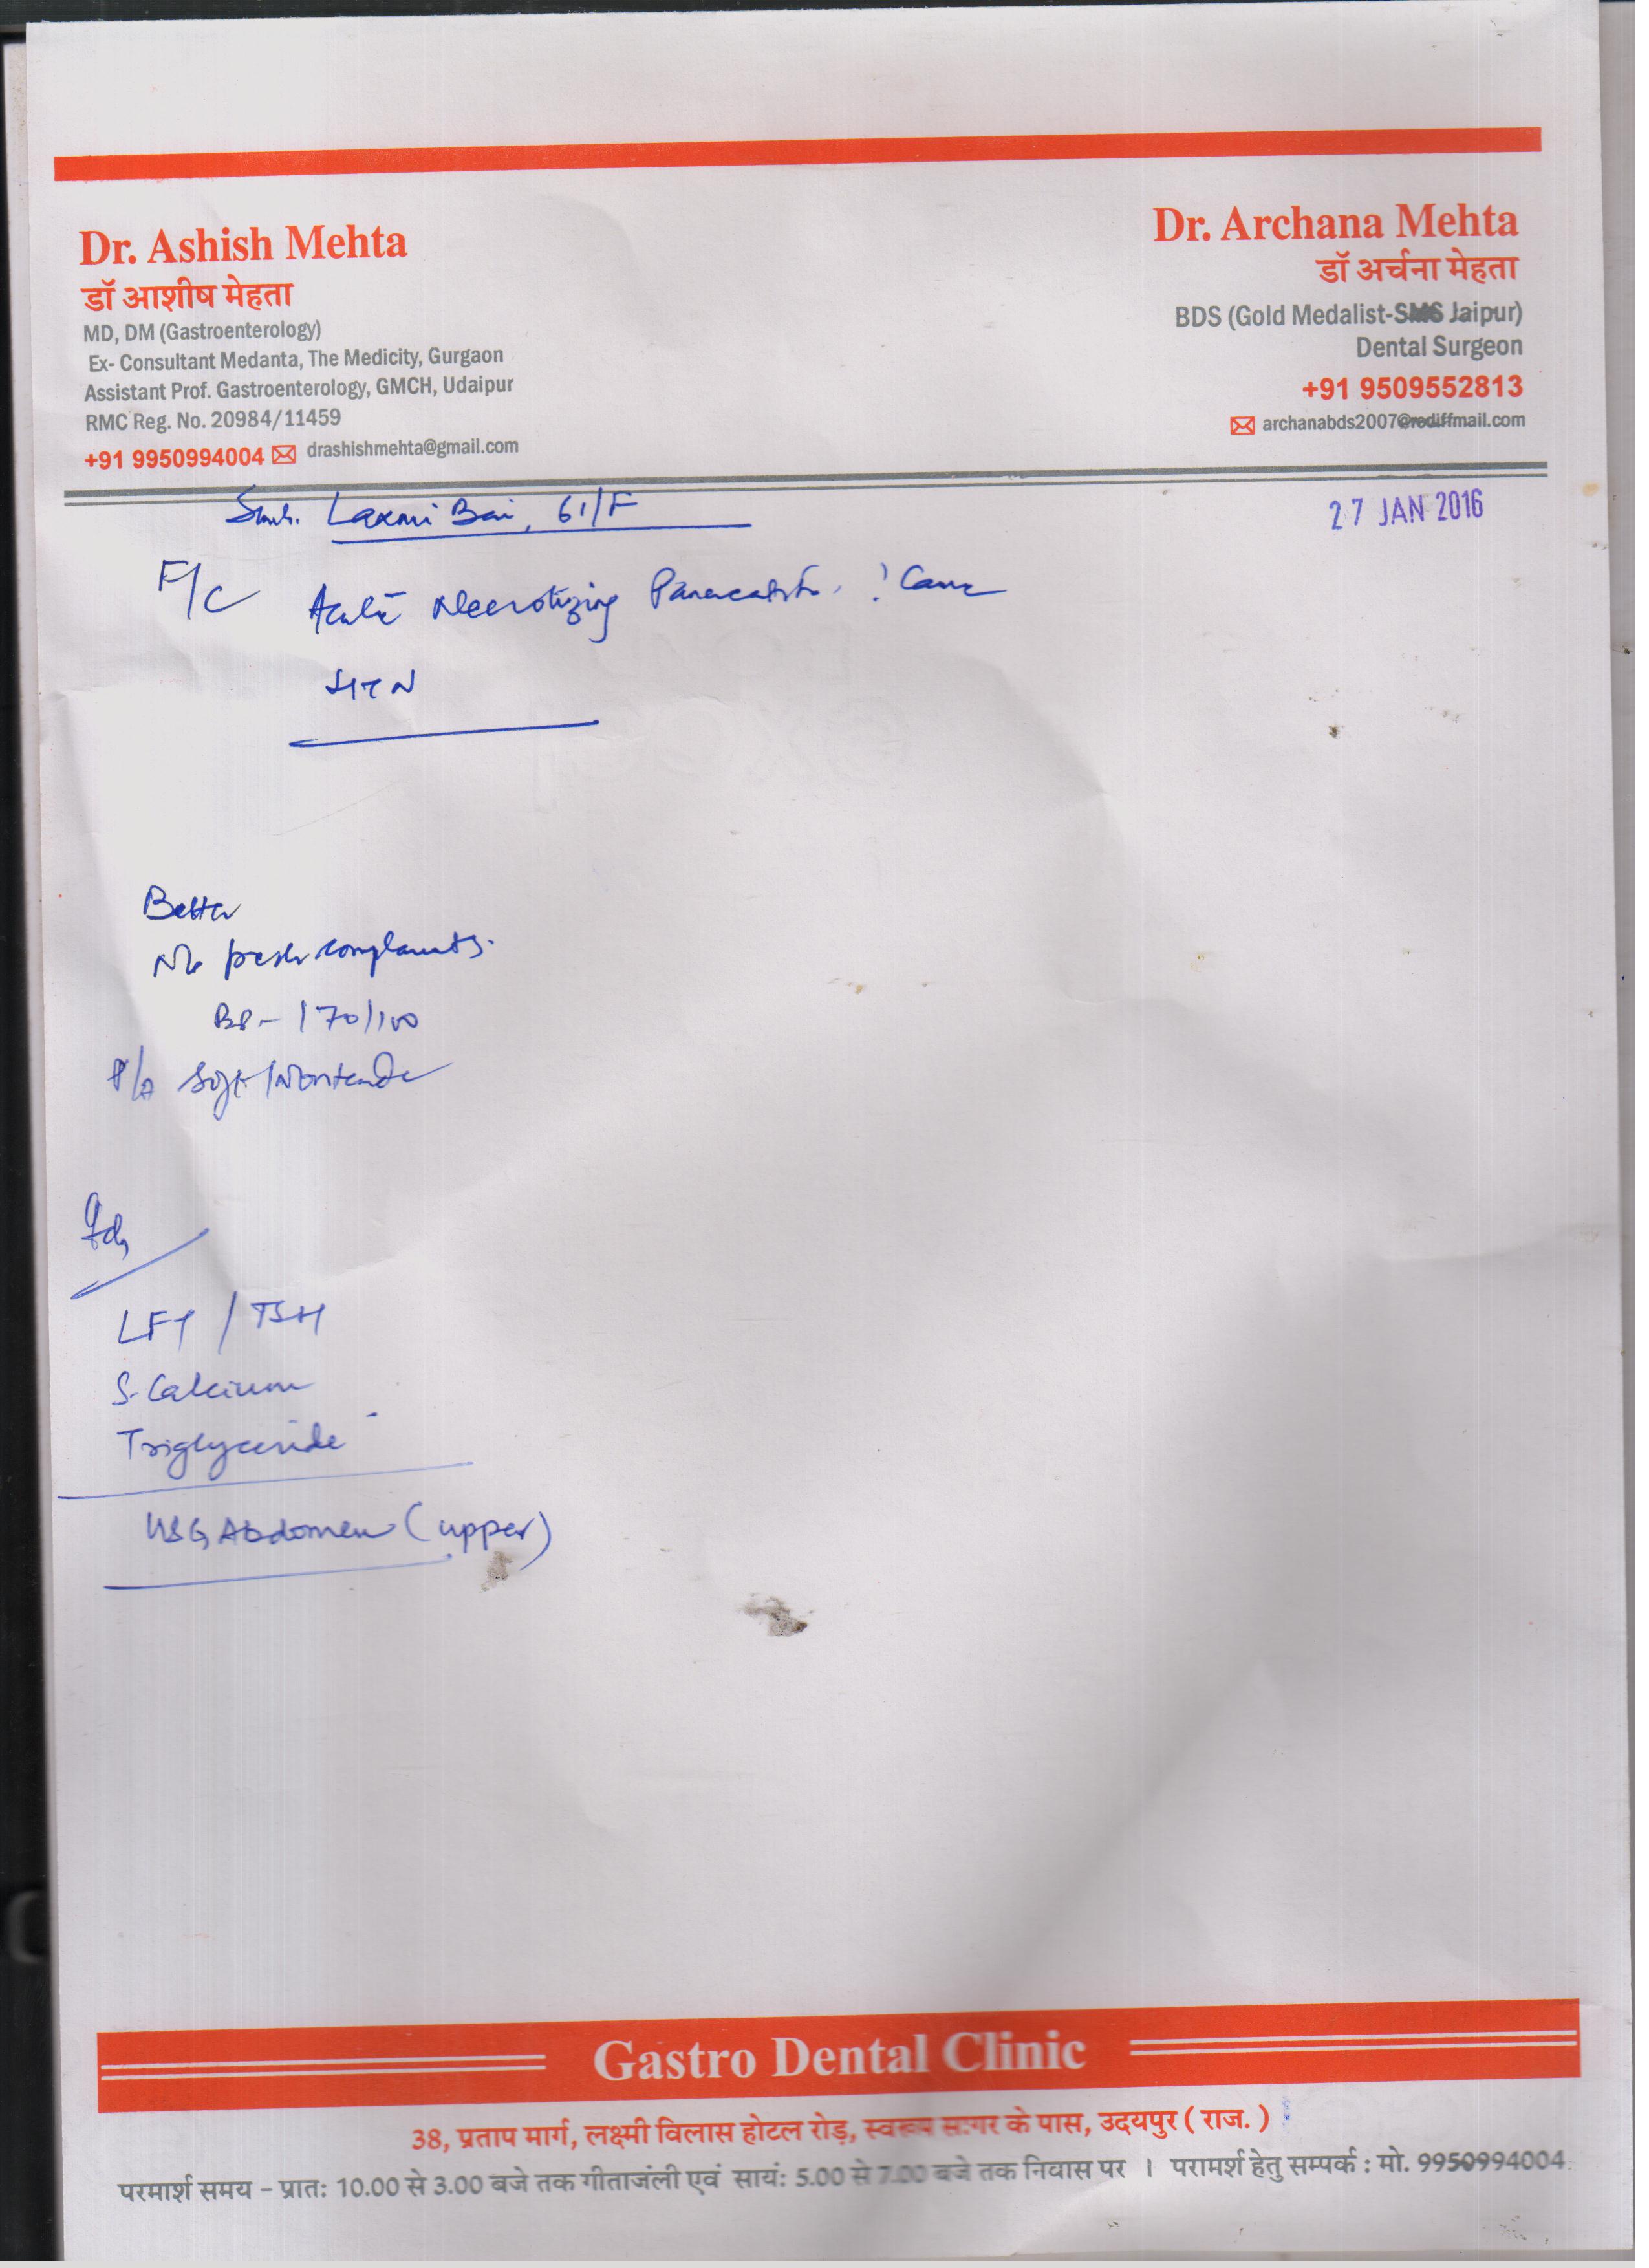 Dr. Ashish Mehta
डॉ आशीष मेहता
MD, DM (Gastroenterology)
Ex- Consultant Medanta, The Medicity, Gurgaon
Assistant Prof. Gastroenterology, GMCH, Udaipur
RMC Reg. No. 20984/11459
+91 9950994004 drashishmehta@gmail.com
Dr. Archana Mehta
डॉ अर्चना मेहता
BDS (Gold Medalist-SMS Jaipur)
Dental Surgeon
+91 9509552813
archanabds2007@rediffmail.com
27 JAN 2016
Smt. Laxmi Bai, 61/F
F/C Acute Necrotizing Pancreatitis, ? Cause
HTN
Better
No fresh complaints.
BP - 170/100
P/A Soft/Nontender
LFT / TSH
S. Calcium
Triglyceride
USG Abdomen (upper)
Gastro Dental Clinic
38, प्रताप मार्ग, लक्ष्मी विलास होटल रोड़, स्वरूप सागर के पास, उदयपुर ( राज. )
परमार्श समय – प्रातः 10.00 से 3.00 बजे तक गीताजंली एवं सायं: 5.00 से 7.00 बजे तक निवास पर । परामर्श हेतु सम्पर्क : मो. 9950994004